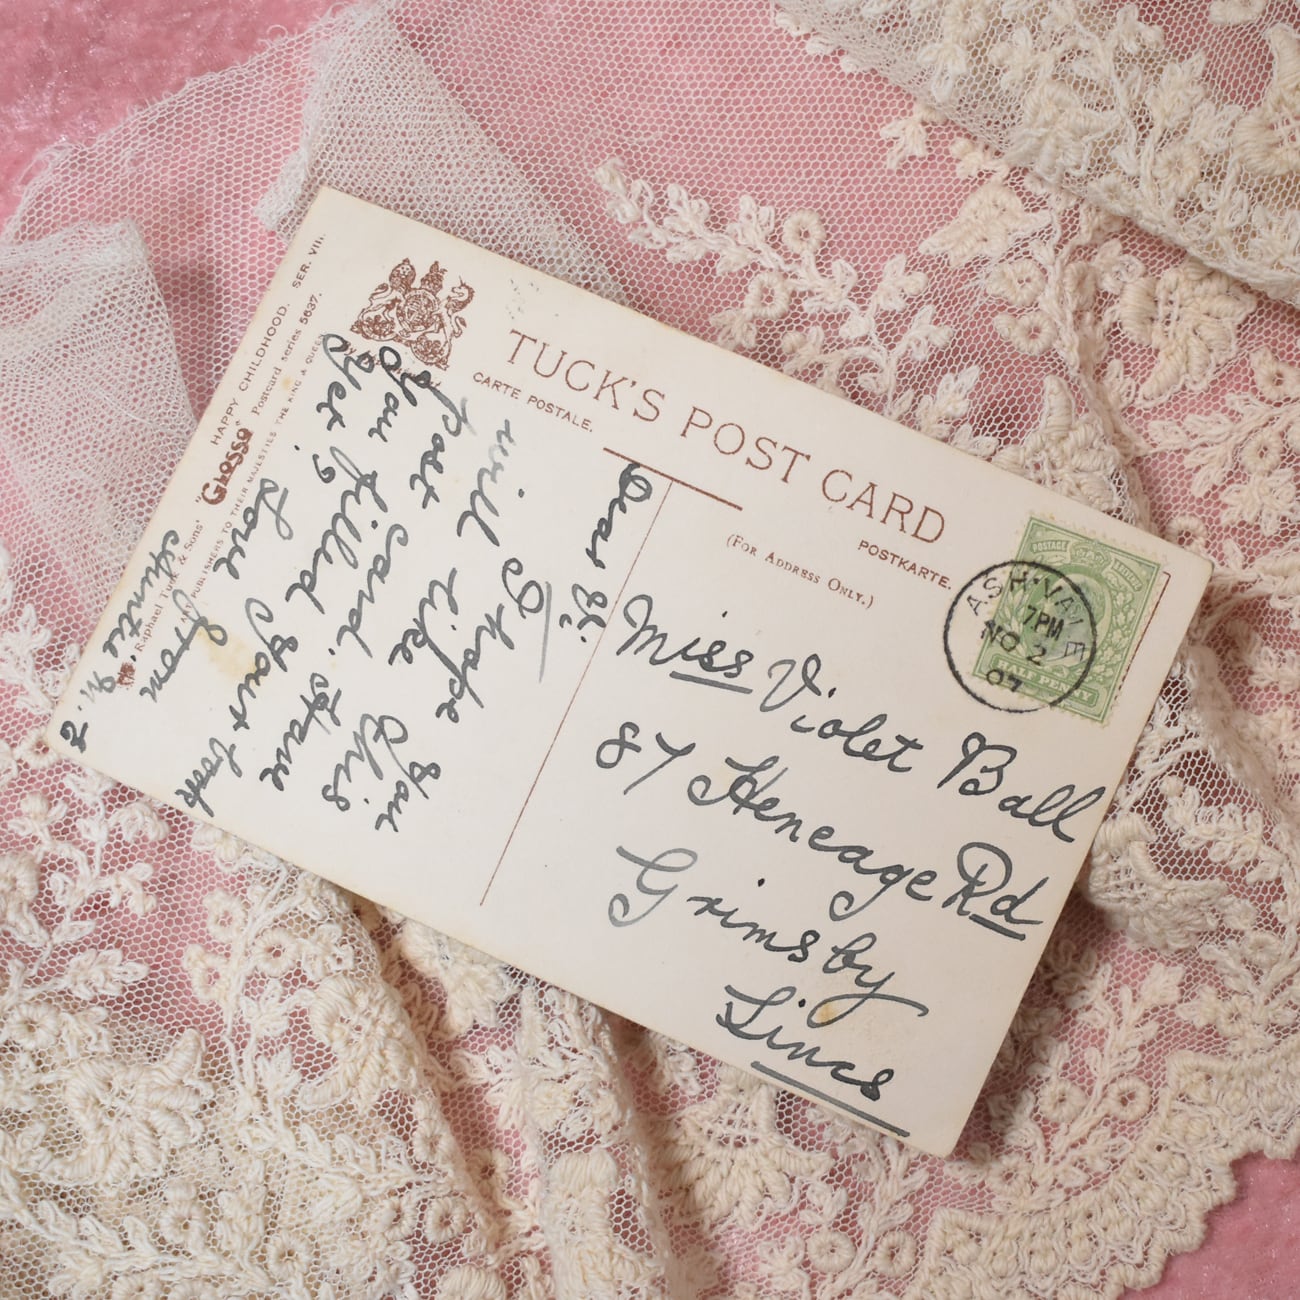 TUCK'S POST CARD
CARTE POSTALE.
POSTKARTE.
(For Address Only.)
HAPPY CHILDHOOD. SER. VIII.
"GLOSSO" Postcard series 5637.
Raphael Tuck & Sons'
ART PUBLISHERS TO THEIR MAJESTIES THE KING & QUEEN
Dear Vi,
I hope you
will like this
post card. Have
you filled your book
yet? Love
from
Auntie N. E
POSTAGE
ASH-VALE
7.PM
NO 2
07
HALF PENNY
Miss Violet Ball
87 Heneage Rd
Grimsby
Lincs